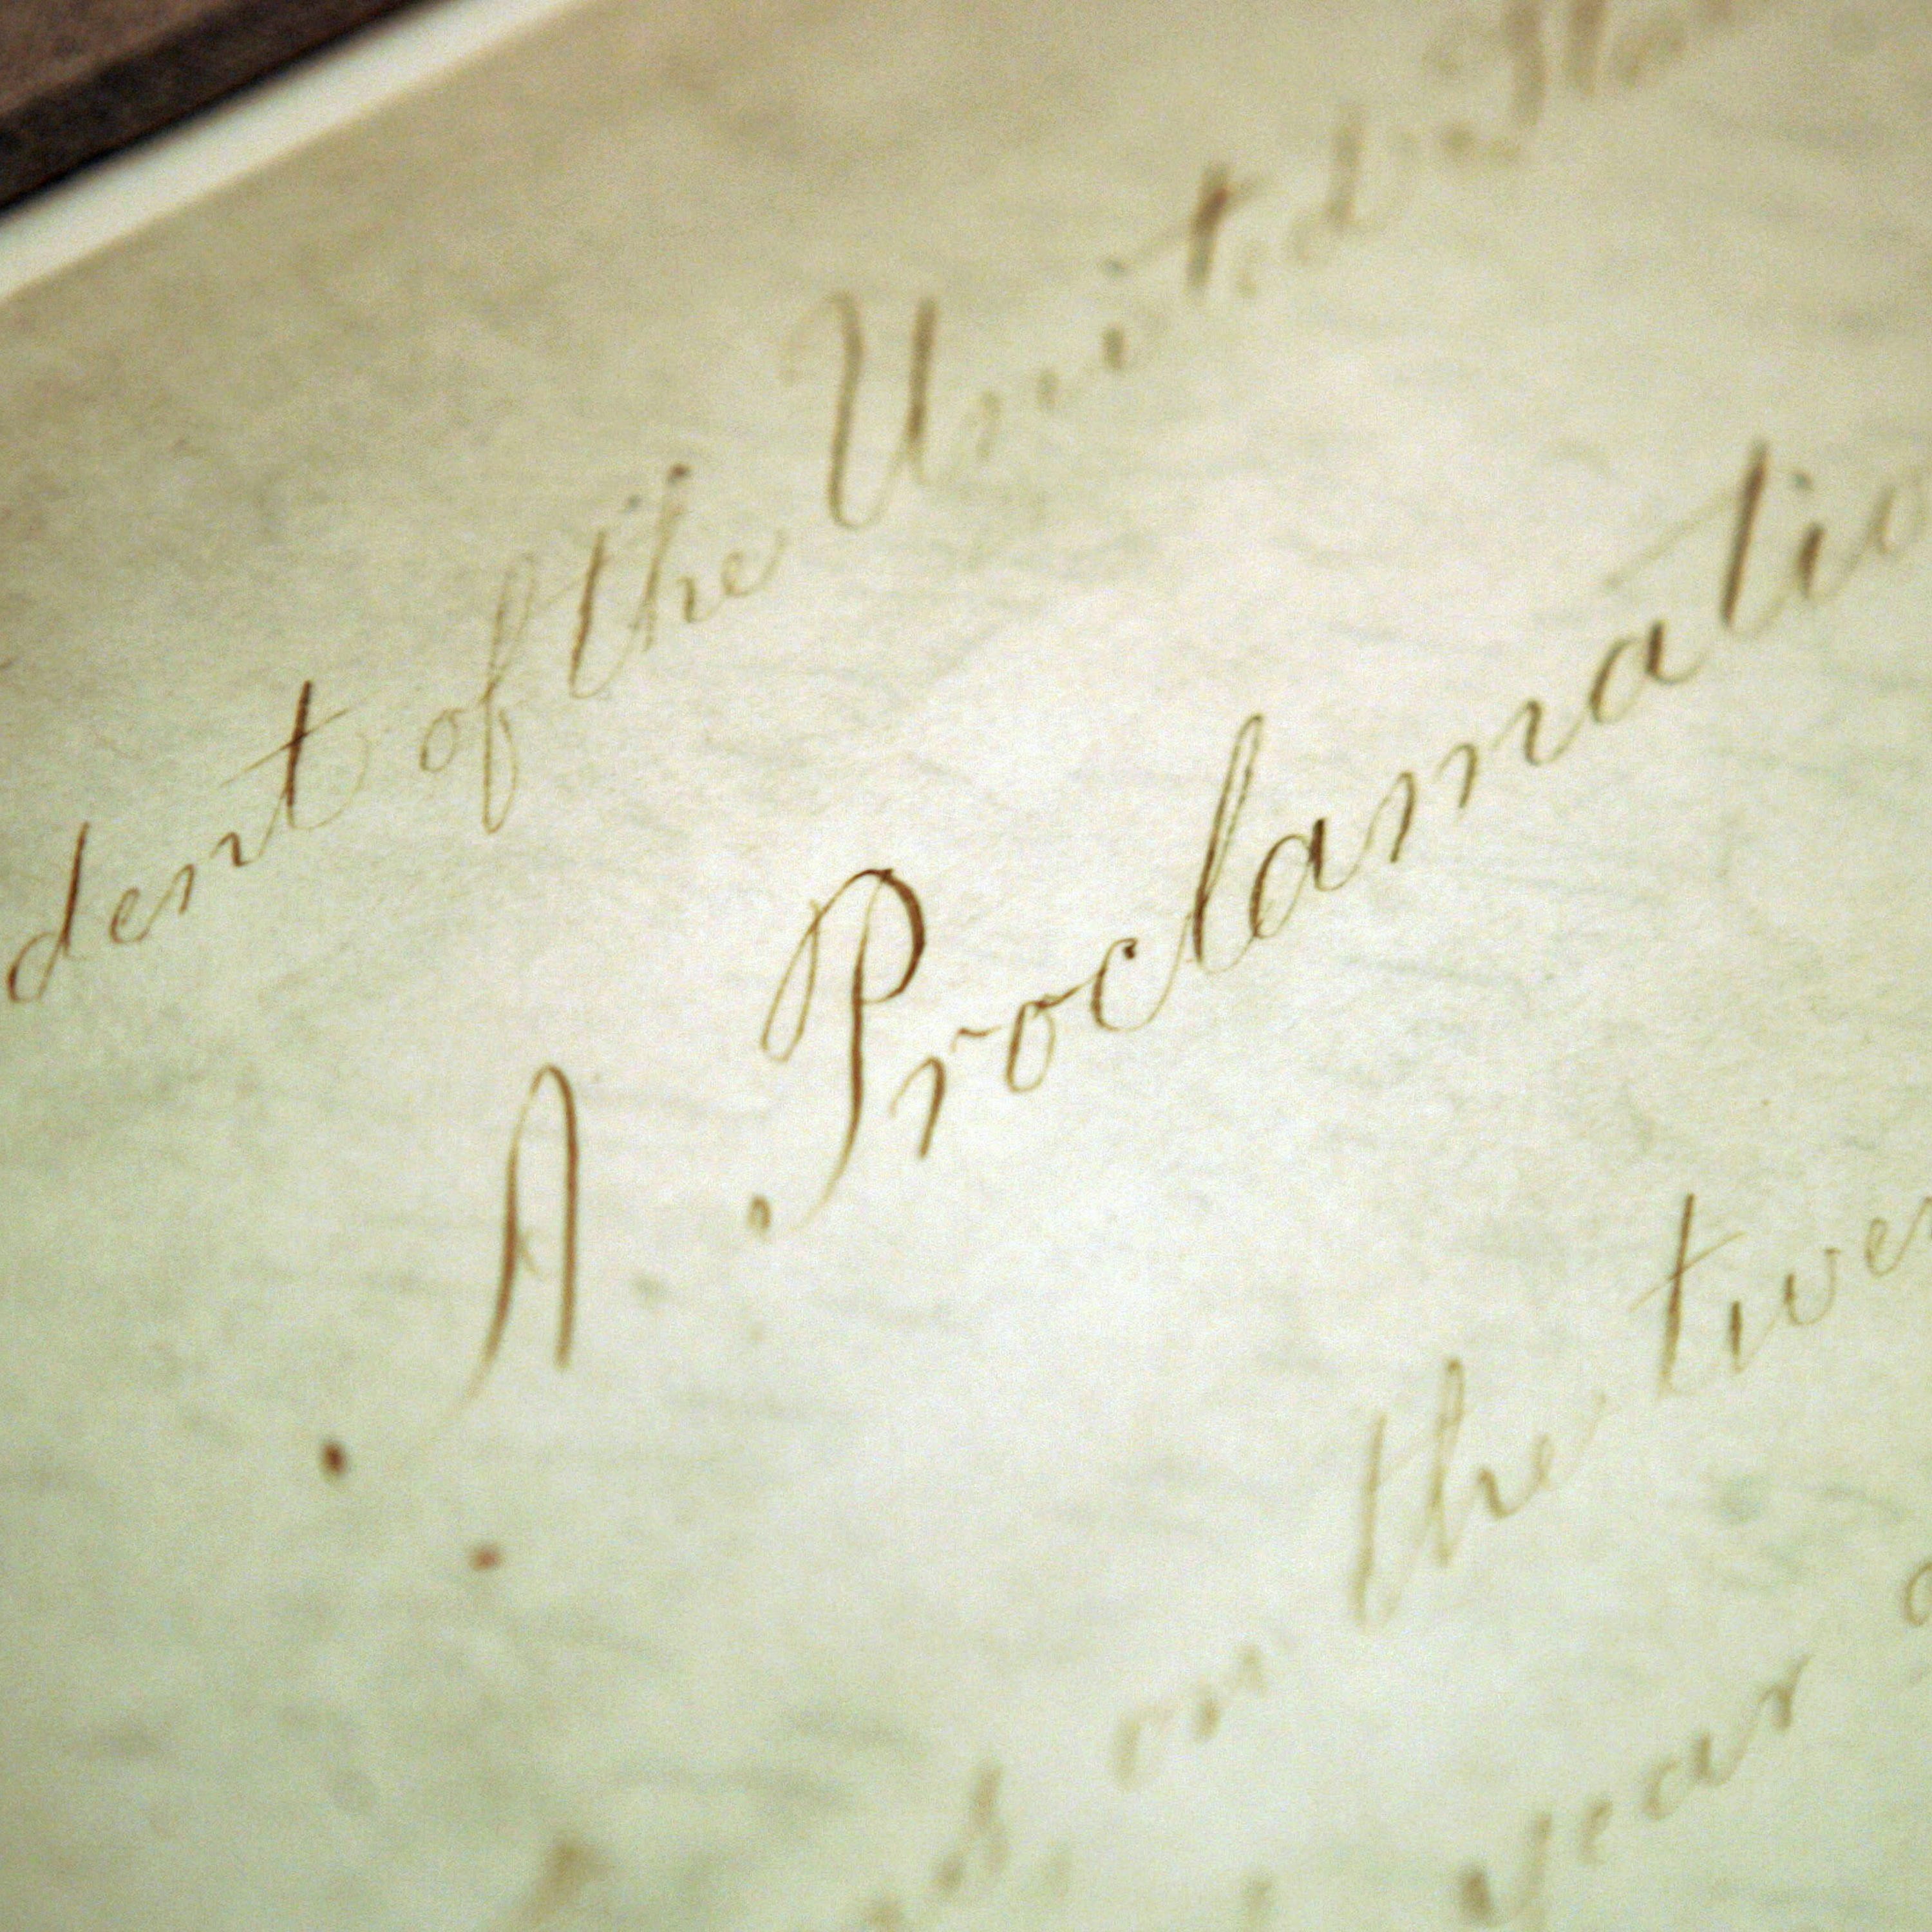 dent of the United Sta
A Proclamatio
s, on the twen
year o